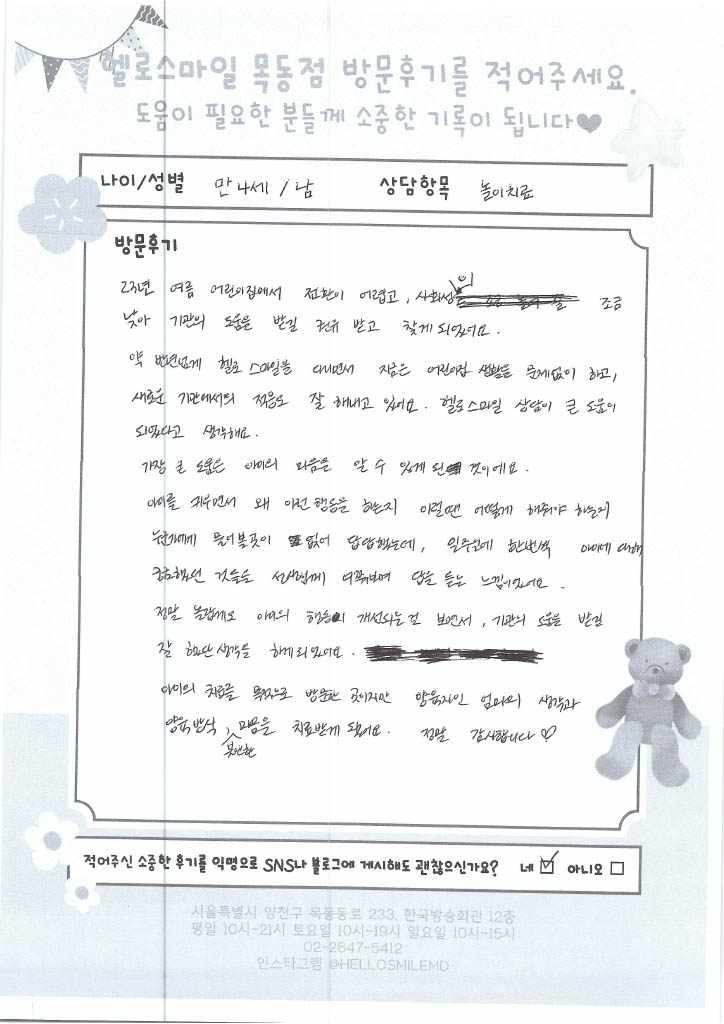 헬로스마일 목동점 방문후기를 적어주세요.
도움이 필요한 분들께 소중한 기록이 됩니다♥
나이/성별 만 4세 / 남 상담항목 놀이치료
방문후기
23년 여름 어린이집에서 전환이 어렵고, 사회성이 조금
낮아 기관의 도움을 받길 권유 받고 찾게 되었어요.
약 반년넘게 헬로 스마일을 다니면서 지금은 어린이집 생활을 문제없이 하고,
새로운 기관에서의 적응도 잘 해내고 있어요. 헬로스마일 상담이 큰 도움이
되었다고 생각해요.
가장 큰 도움은 아이의 마음을 알 수 있게 된 것이에요.
아이를 키우면서 왜 이런 행동을 하는지 이럴땐 어떻게 해줘야 하는지
누군가에게 물어볼곳이 없어 답답했는데, 일주일에 한번씩 아이에 대해
궁금했던 것들을 선생님께 여쭤보며 답을 듣는 느낌이었어요.
정말 놀랍게도 아이의 행동이 개선되는걸 보면서, 기관의 도움을 받길
잘 했단 생각을 하게 되었어요.
아이의 치료를 목적으로 방문한 곳이지만 양육자인 엄마의 생각과
양육방식, 불안한 마음을 치료받게 됐어요. 정말 감사합니다 ♡
적어주신 소중한 후기를 익명으로 SNS나 블로그에 게시해도 괜찮으신가요? 네 ☑ 아니오 ☐
서울특별시 양천구 목동동로 233, 한국방송회관 12층
평일 10시~21시 토요일 10시~19시 일요일 10시~15시
02-2647-5412
인스타그램 @HELLOSMILEMD